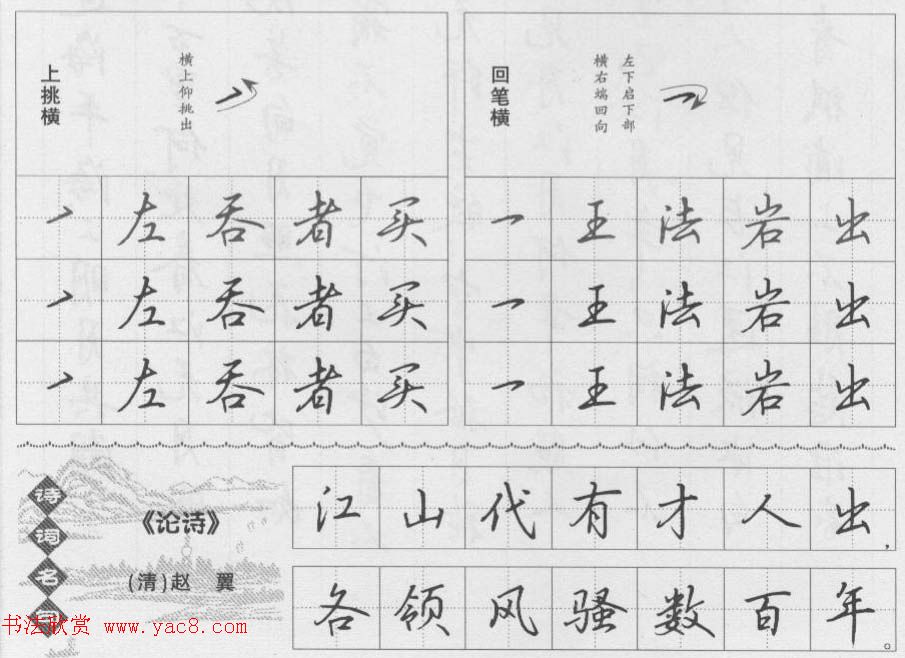 上挑横
横上仰挑出
回笔横
左下启下部
横右端回向
㇀ 左 吞 者 买
一 王 法 岩 出
㇀ 左 吞 者 买
一 王 法 岩 出
㇀ 左 吞 者 买
一 王 法 岩 出
诗词名句
《论诗》
(清)赵 翼
江山代有才人出，
各领风骚数百年。
书法欣赏 www.yac8.com